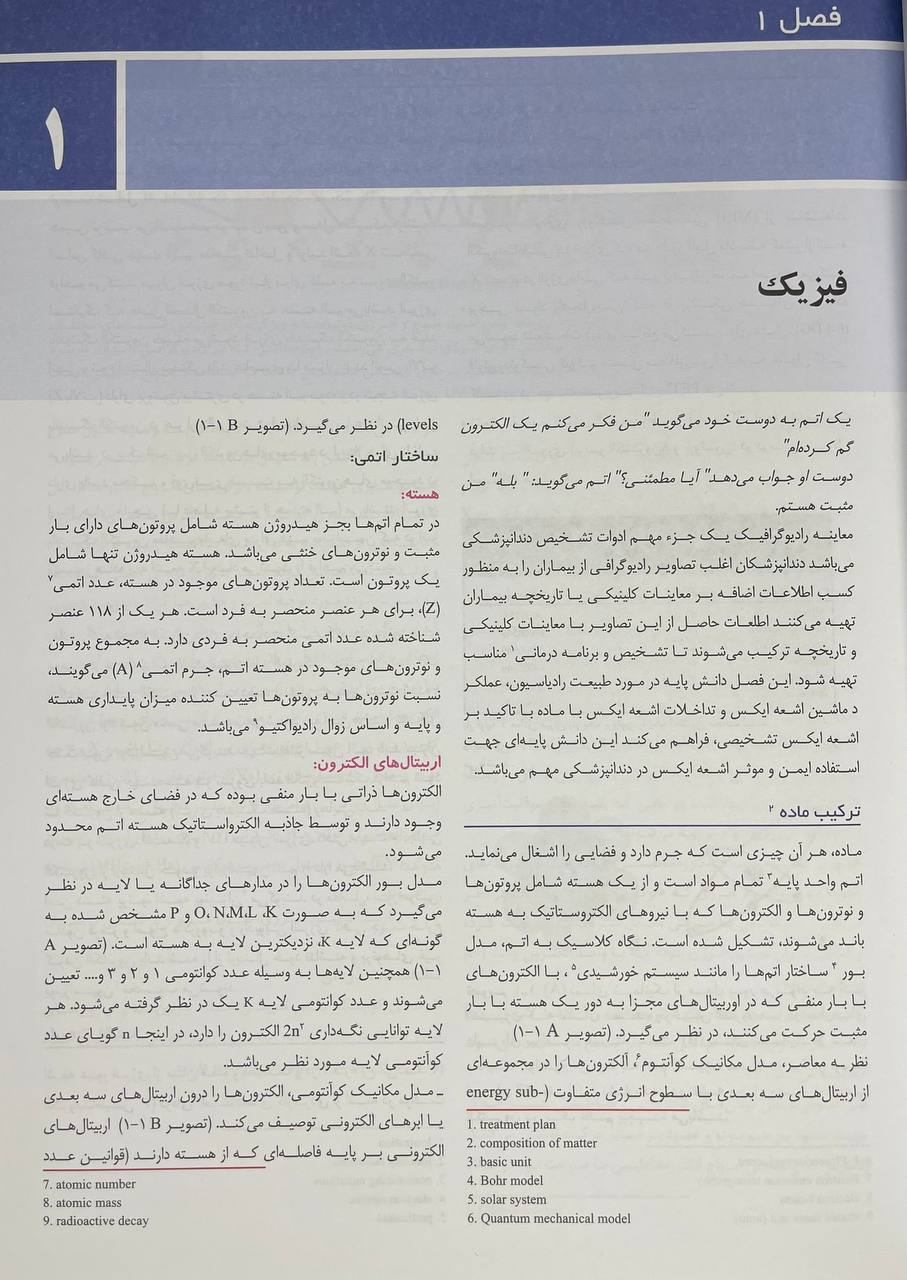 فصل ۱
۱
فیزیک
یک اتم به دوست خود می‌گوید "من فکر می‌کنم یک الکترون
گم کرده‌ام"
دوست او جواب می‌دهد" آیا مطمئنی؟" اتم می‌گوید: " بله" من
مثبت هستم.
معاینه رادیوگرافیک یک جزء مهم ادوات تشخیص دندانپزشکی
می‌باشد دندانپزشکان اغلب تصاویر رادیوگرافی از بیماران را به منظور
کسب اطلاعات اضافه بر معاینات کلینیکی یا تاریخچه بیماران
تهیه می‌کنند اطلعات حاصل از این تصاویر با معاینات کلینیکی
و تاریخچه ترکیب می‌شوند تا تشخیص و برنامه درمانی۱ مناسب
تهیه شود. این فصل دانش پایه در مورد طبیعت رادیاسیون، عملکر
د ماشین اشعه ایکس و تداخلات اشعه ایکس با ماده با تاکید بر
اشعه ایکس تشخیصی، فراهم می‌کند این دانش پایه‌ای جهت
استفاده ایمن و موثر اشعه ایکس در دندانپزشکی مهم می‌باشد.
ترکیب ماده ۲
ماده، هر آن چیزی است که جرم دارد و فضایی را اشغال می‌نماید.
اتم واحد پایه۳ تمام مواد است و از یک هسته شامل پروتون‌ها
و نوترون‌ها و الکترون‌ها که با نیروهای الکتروستاتیک به هسته
باند می‌شوند، تشکیل شده است. نگاه کلاسیک به اتم، مدل
بور ۴ ساختار اتم‌ها را مانند سیستم خورشیدی۵ ، با الکترون‌های
با بار منفی که در اوربیتال‌های مجزا به دور یک هسته با بار
مثبت حرکت می‌کنند، در نظر می‌گیرد. (تصویر ۱-۱ A)
نظر ـه معاصر، مدل مکانیک کوآنتوم۶، الکترون‌ها را در مجموعه‌ای
از اربیتال‌های سه بعدی با سطوح انرژی متفاوت (energy sub-
1. treatment plan
2. composition of matter
3. basic unit
4. Bohr model
5. solar system
6. Quantum mechanical model
levels) در نظر می‌گیرد. (تصویر ۱-۱ B)
ساختار اتمی:
هسته:
در تمام اتم‌ها بجز هیدروژن هسته شامل پروتون‌های دارای بار
مثبت و نوترون‌های خنثی می‌باشد. هسته هیدروژن تنها شامل
یک پروتون است. تعداد پروتون‌های موجود در هسته، عدد اتمی۷
(Z)، برای هر عنصر منحصر به فرد است. هر یک از ۱۱۸ عنصر
شناخته شده عدد اتمی منحصر به فردی دارد. به مجموع پروتون
و نوترون‌های موجود در هسته اتم، جرم اتمی۸ (A) می‌گویند،
نسبت نوترون‌ها به پروتون‌ها تعیین کننده میزان پایداری هسته
و پایه و اساس زوال رادیواکتیو۹ می‌باشد.
اربیتال‌های الکترون:
الکترون‌ها ذراتی با بار منفی بوده که در فضای خارج هسته‌ای
وجود دارند و توسط جاذبه الکترواستاتیک هسته اتم محدود
می‌شود.
مدل بور الکترون‌ها را در مدارهای جداگانه یا لایه در نظر
می‌گیرد که به صورت K، L،M،N ،O و P مشخص شده به
گونه‌ای که لایه K، نزدیکترین لایه به هسته است. (تصویر A
۱-۱) همچنین لایه‌ها به وسیله عدد کوانتومی ۱ و ۲ و ۳ و.... تعیین
می‌شوند و عدد کوانتومی لایه K یک در نظر گرفته می‌شود. هر
لایه توانایی نگه‌داری 2n۲ الکترون را دارد، در اینجا n گویای عدد
کوآنتومی لایه مورد نظر می‌باشد.
ـ مدل مکانیک کوآنتومی، الکترون‌ها را درون اربیتال‌های سه بعدی
یا ابرهای الکترونی توصیف می‌کند. (تصویر ۱-۱ B) اربیتال‌های
الکترونی بر پایه فاصله‌ای که از هسته دارند (قوانین عدد
7. atomic number
8. atomic mass
9. radioactive decay